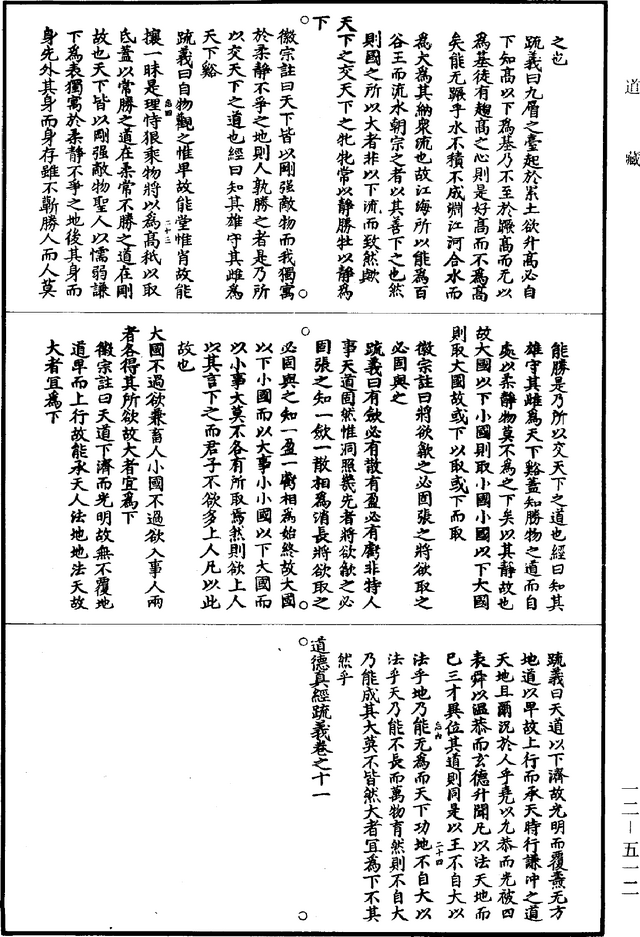 道藏
之也
疏義曰九層之臺起於累土欲升高必自
下知高以下為基乃不至於蹶高而无以
為基徒有趨高之心則是好高而不為高
矣能无蹶乎水不積不成淵江河合水而
為大為其納衆流也故江海所以能為百
谷王而流水朝宗之者以其善下之也然
則國之所以大者非以下流而致然歟
天下之交天下之牝牝常以靜勝牡以靜為
下
徽宗註曰天下皆以剛强敵物而我獨寓
於柔靜不爭之地則人孰勝之者是乃所
以交天下之道也經曰知其雄守其雌為
天下谿
疏義曰自物觀之惟卑故能堂惟肖故能
攘一昧是理恃狠乘物將以為高秖以取
凥蓋以常勝之道在柔常不勝之道在剛
故也天下皆以剛强敵物聖人以懦弱謙
下為表獨寓於柔靜不爭之地後其身而
身先外其身而身存雖不蘄勝人而人莫
二十三
能勝是乃所以交天下之道也經曰知其
雄守其雌為天下谿蓋知勝物之道而自
處以柔靜物莫不為之下矣以其靜故也
故大國以下小國則取小國小國以下大國
則取大國故或下以取或下而取
徽宗註曰將欲歙之必固張之將欲取之
必固與之
疏義曰有歛必有散有盈必有虧非特人
事天道固然惟洞照幾先者將欲歙之必
固張之知一歛一散相為消長將欲取之
必固與之知一盈一虧相為始終故大國
以下小國而以大事小小國以下大國而
以小事大莫不各有所取焉然則欲上人
以其言下之而君子不欲多上人凡以此
故也
大國不過欲兼畜人小國不過欲入事人兩
者各得其所欲故大者宜為下
徽宗註曰天道下濟而光明故無不覆地
道卑而上行故能承天人法地地法天故
大者宜為下
疏義曰天道以下濟故光明而覆燾无方
地道以卑故上行而承天時行謙沖之道
天地且爾況於人乎堯以允恭而光被四
表舜以溫恭而玄德升聞凡以法天地而
已三才異位其道則同是以王不自大以
二十四
法乎地乃能无為而天下功地不自大以
法乎天乃能不長而萬物育然則不自大
乃能成其大莫不皆然大者宜為下不其
然乎
道德真經疏義卷之十一
一二—五一二